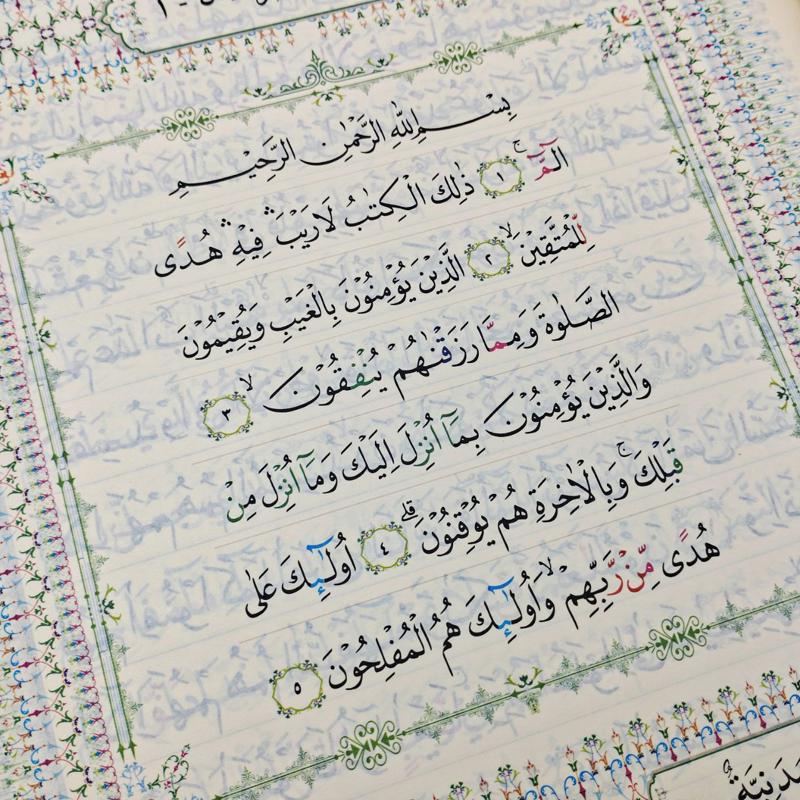 بِسْمِ اللّٰهِ الرَّحْمٰنِ الرَّحِيْمِ
الۤمّۤ ۚ ١ ذٰلِكَ الْكِتٰبُ لَا رَيْبَ ۛ فِيْهِ ۛ هُدًى
لِّلْمُتَّقِيْنَ ۙ ٢ الَّذِيْنَ يُؤْمِنُوْنَ بِالْغَيْبِ وَيُقِيْمُوْنَ
الصَّلٰوةَ وَمِمَّا رَزَقْنٰهُمْ يُنْفِقُوْنَ ۙ ٣
وَالَّذِيْنَ يُؤْمِنُوْنَ بِمَآ اُنْزِلَ اِلَيْكَ وَمَآ اُنْزِلَ مِنْ
قَبْلِكَ ۚ وَبِالْاٰخِرَةِ هُمْ يُوْقِنُوْنَ ۗ ٤ اُولٰۤىِٕكَ عَلٰى
هُدًى مِّنْ رَّبِّهِمْ ۙ وَاُولٰۤىِٕكَ هُمُ الْمُفْلِحُوْنَ ٥